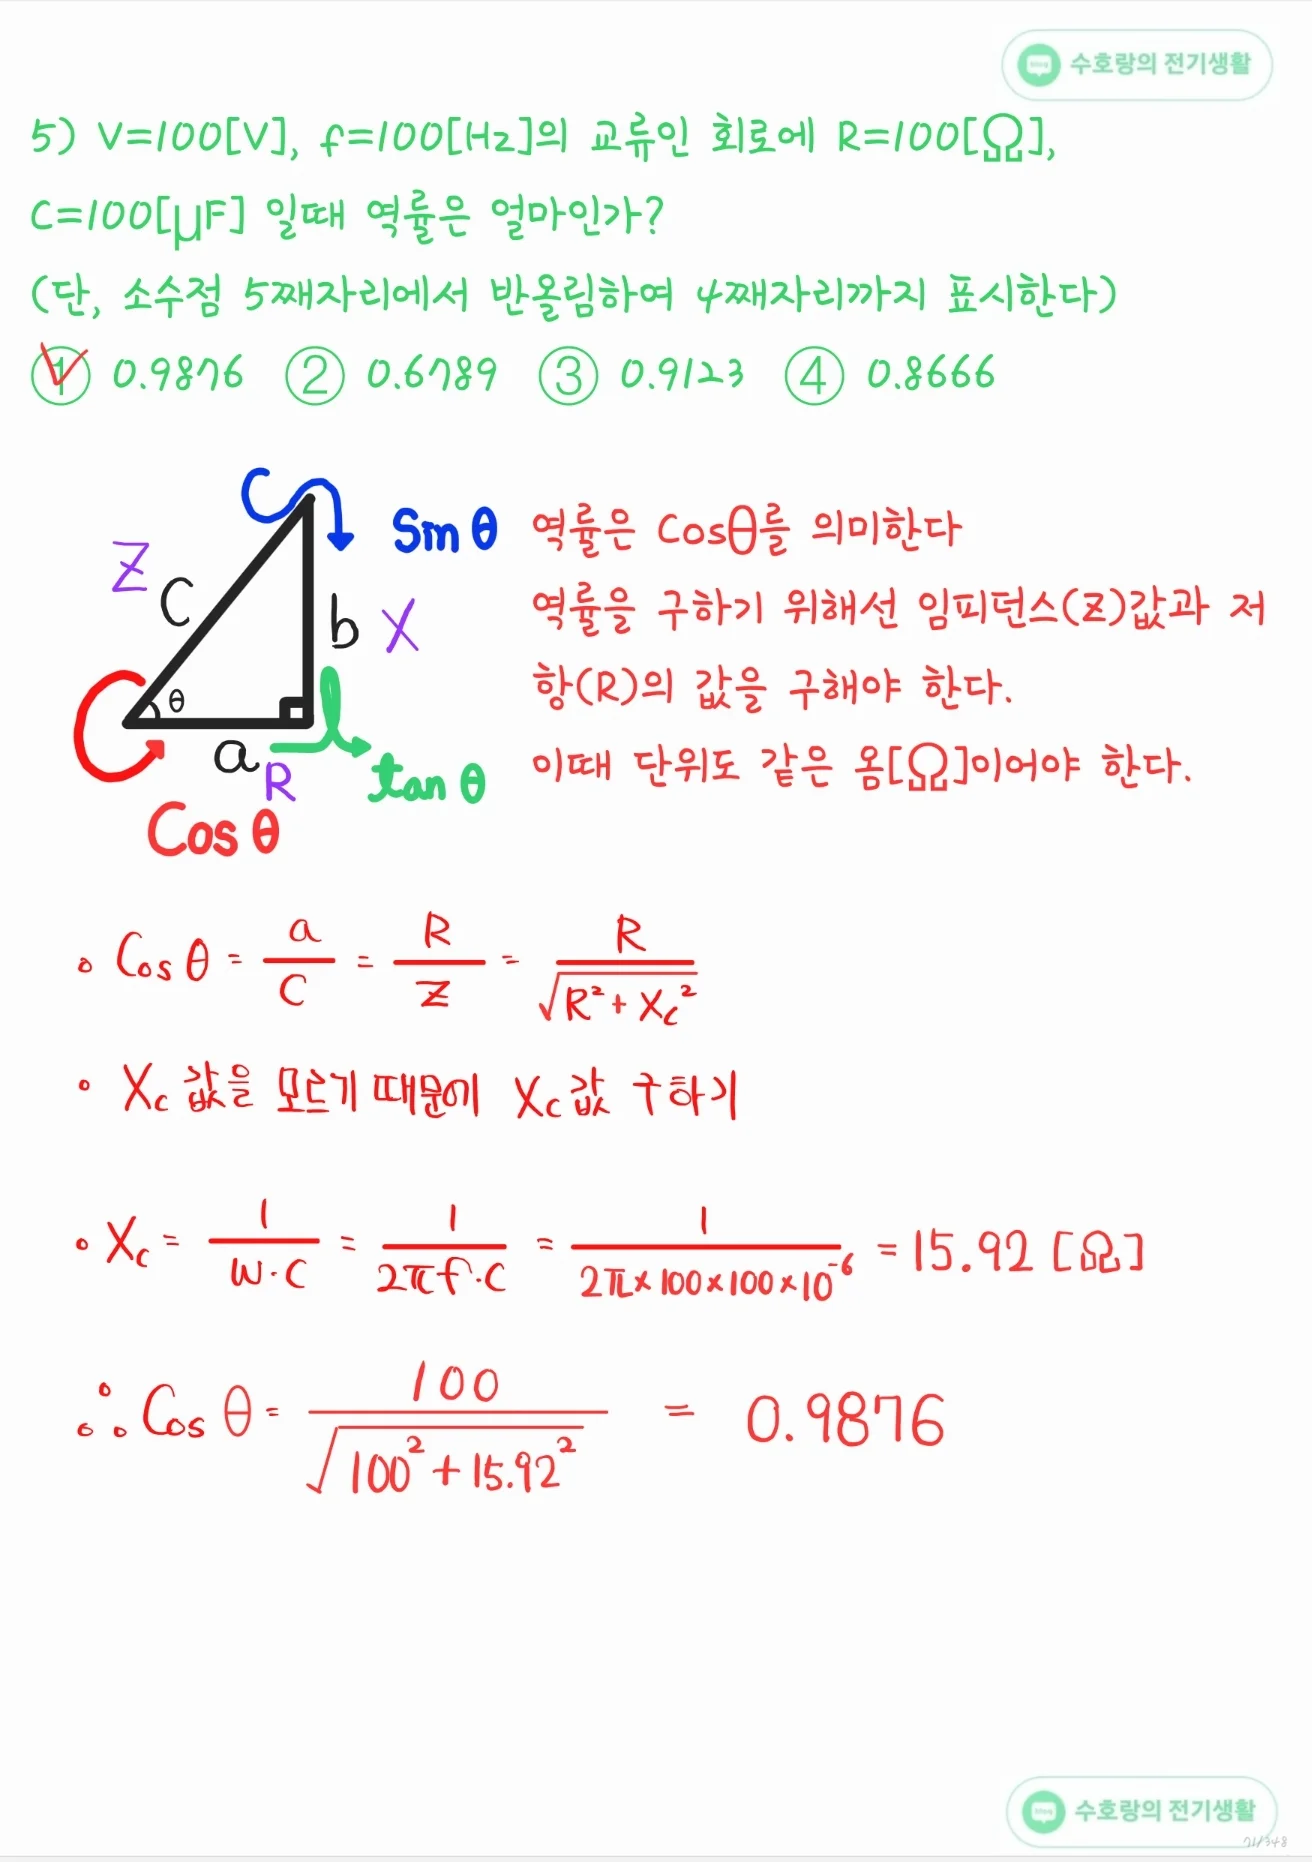 수호랑의 전기생활
5) V=100[V], f=100[Hz]의 교류인 회로에 R=100[Ω],
C=100[μF] 일때 역률은 얼마인가?
(단, 소수점 5째자리에서 반올림하여 4째자리까지 표시한다)
① 0.9876 ② 0.6789 ③ 0.9123 ④ 0.8666
Sin θ
Z
C
b X
θ
a
R
tan θ
Cos θ
역률은 Cosθ를 의미한다
역률을 구하기 위해선 임피던스(Z)값과 저
항(R)의 값을 구해야 한다.
이때 단위도 같은 옴[Ω]이어야 한다.
∘ Cos θ = a/C = R/Z = R/√(R² + Xc²)
∘ Xc 값을 모르기 때문에 Xc값 구하기
∘ Xc = 1/(W·C) = 1/(2πf·C) = 1/(2π×100×100×10⁻⁶) = 15.92 [Ω]
∴ Cos θ = 100/√(100² + 15.92²) = 0.9876
수호랑의 전기생활